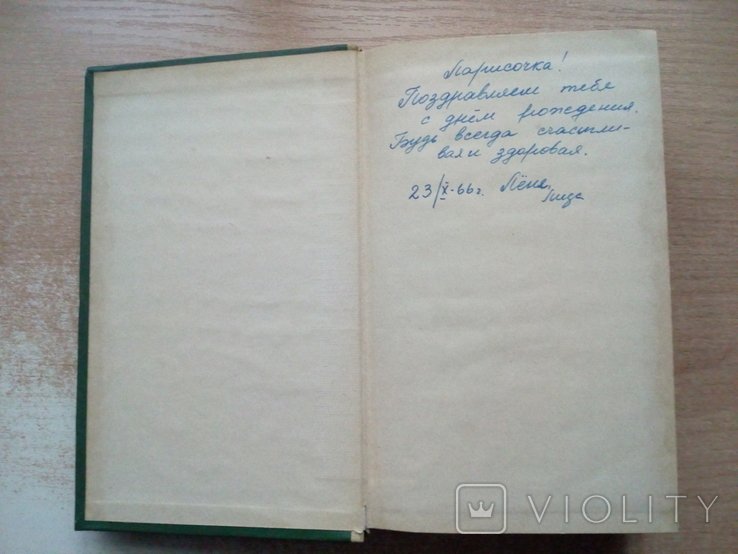 Ларисочка!
Поздравляем тебя
с днём рождения.
Будь всегда счастли-
вая и здоровая.
23/X-66г. Лёня,
Лиза
VIOLITY